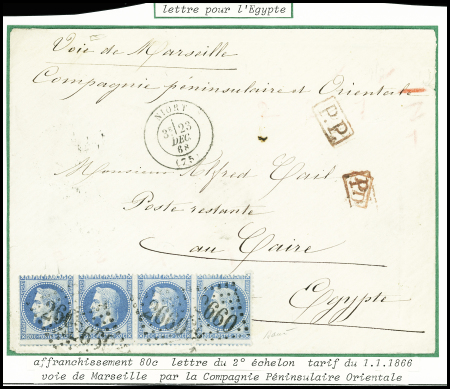 lettre pour l'Egypte
Voie de Marseille
Compagnie péninsulaire et Orientale
NIORT
3E 23
DEC.
68
(75)
P.P.
PD
Monsieur Alfred Cail
Poste restante
au Caire
Egypte
2660
affranchissement 80c lettre du 2° échelon tarif du 1.1.1866
voie de Marseille par la Compagnie Péninsulaire Orientale